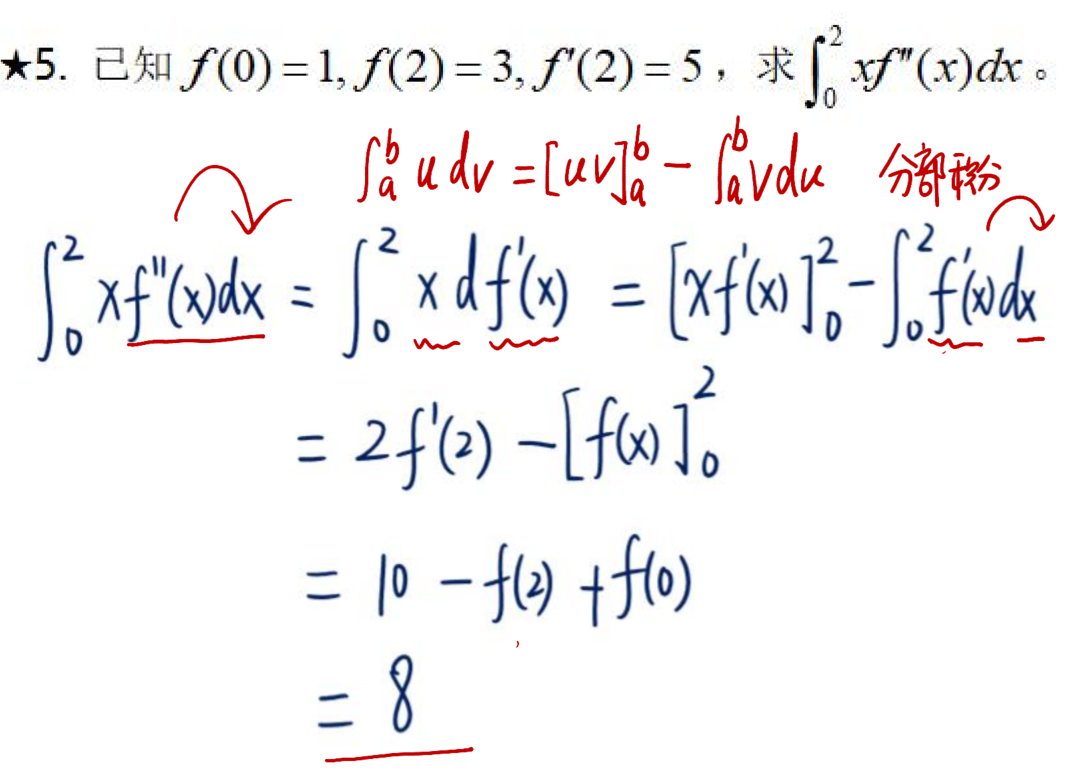 ★5. 已知 f(0)=1, f(2)=3, f'(2)=5，求∫₀² xf''(x)dx。
∫ₐᵇ u dv = [uv]ₐᵇ - ∫ₐᵇ v du 分部积分
∫₀² xf''(x)dx = ∫₀² x d f'(x) = [xf'(x)]₀² - ∫₀² f'(x)dx
= 2f'(2) - [f(x)]₀²
= 10 - f(2) + f(0)
= 8